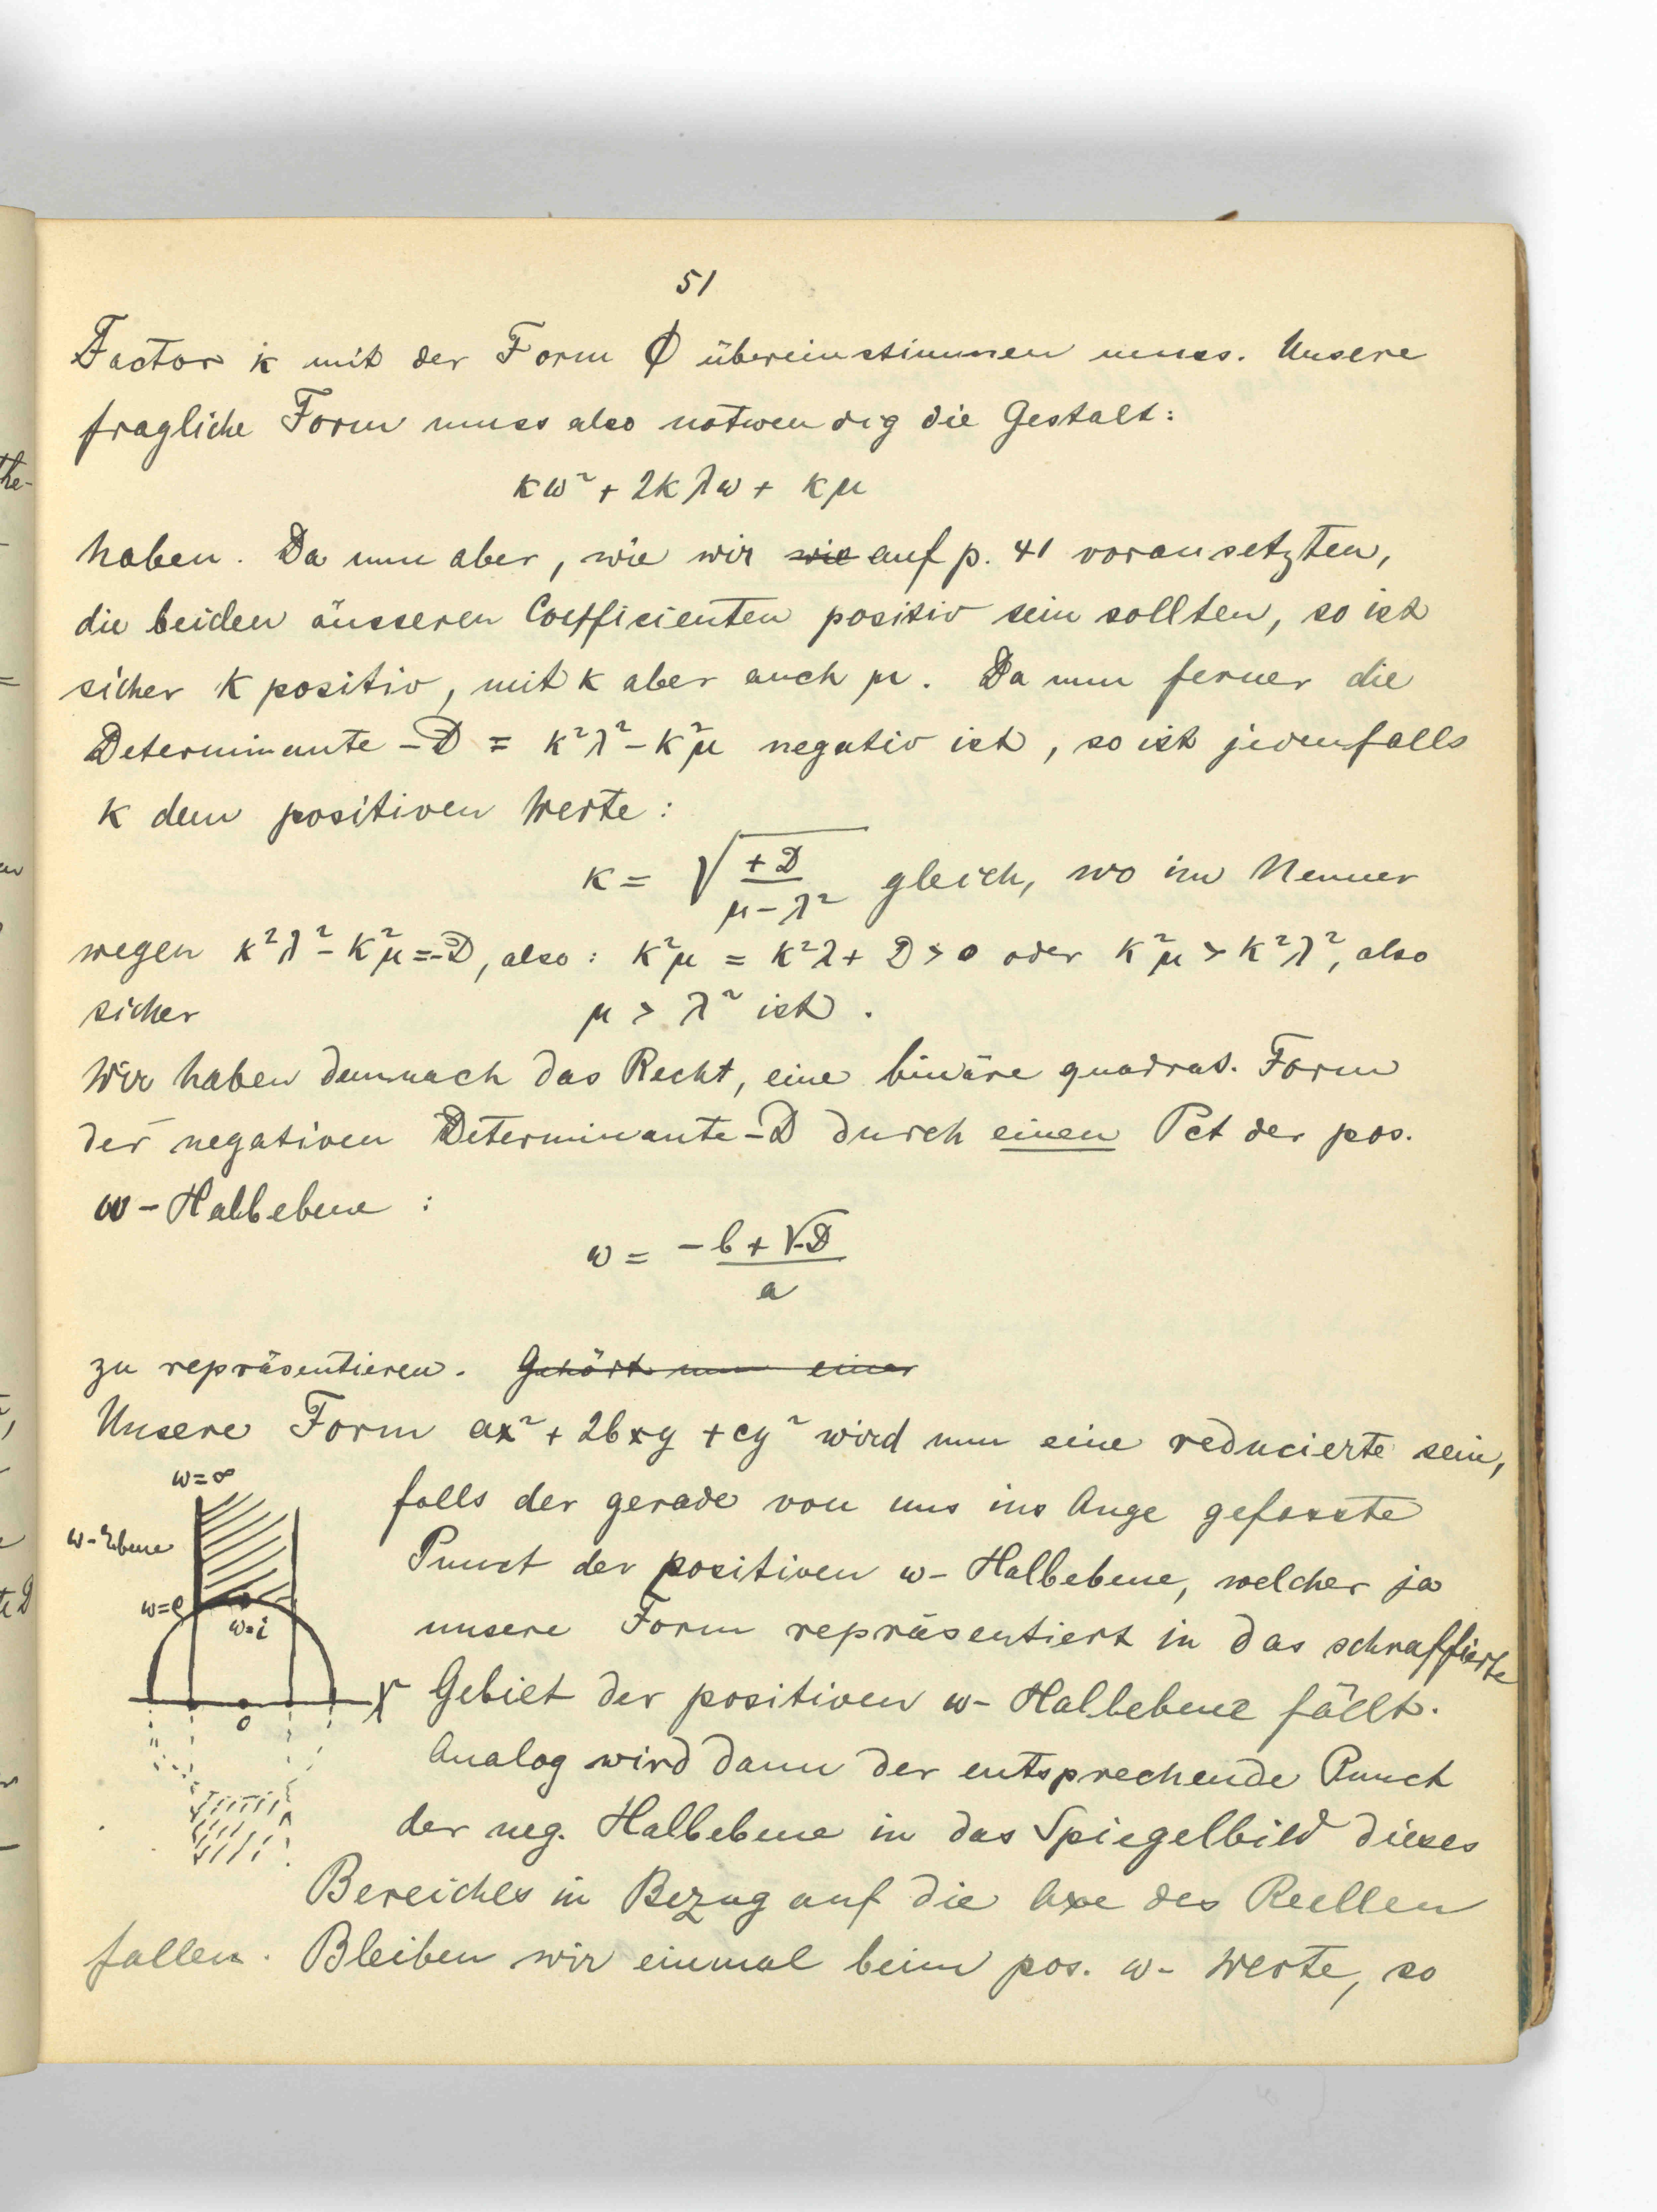 51
Factor k mit der Form ϕ übereinstimmen muss. Unsere
fragliche Form muss also notwendig die Gestalt:
kω² + 2kλω + kμ
haben. Da nun aber, wie wir wie auf p. 41 voraussetzten,
die beiden äusseren Coefficienten positiv sein sollten, so ist
sicher k positiv, mit k aber auch μ. Da nun ferner die
Determinante -D = k²λ² - k²μ negativ ist, so ist jedenfalls
k dem positiven Werte:
k = √(+D / (μ - λ²)) gleich, wo im Nenner
wegen k²λ² - k²μ = -D, also: k²μ = k²λ + D > 0 oder k²μ > k²λ², also
sicher μ > λ² ist.
Wir haben demnach das Recht, eine binäre quadrat. Form
der negativen Determinante -D durch einen Pct der pos.
ω-Halbebene:
ω = (-b + √-D) / a
zu repräsentieren. Gehört nun einer
Unsere Form ax² + 2bxy + cy² wird nun eine reducierte sein,
ω=∞
falls der gerade von uns ins Auge gefasste
ω-Ebene
Punct der positiven ω-Halbebene, welcher ja
ω=ρ
ω=i
unsere Form repräsentiert in das schraffierte
0
Gebiet der positiven ω-Halbebene fällt.
Analog wird dann der entsprechende Punct
der neg. Halbebene in das Spiegelbild dieses
Bereiches in Bezug auf die Axe des Reellen
fallen. Bleiben wir einmal beim pos. ω-Werte, so